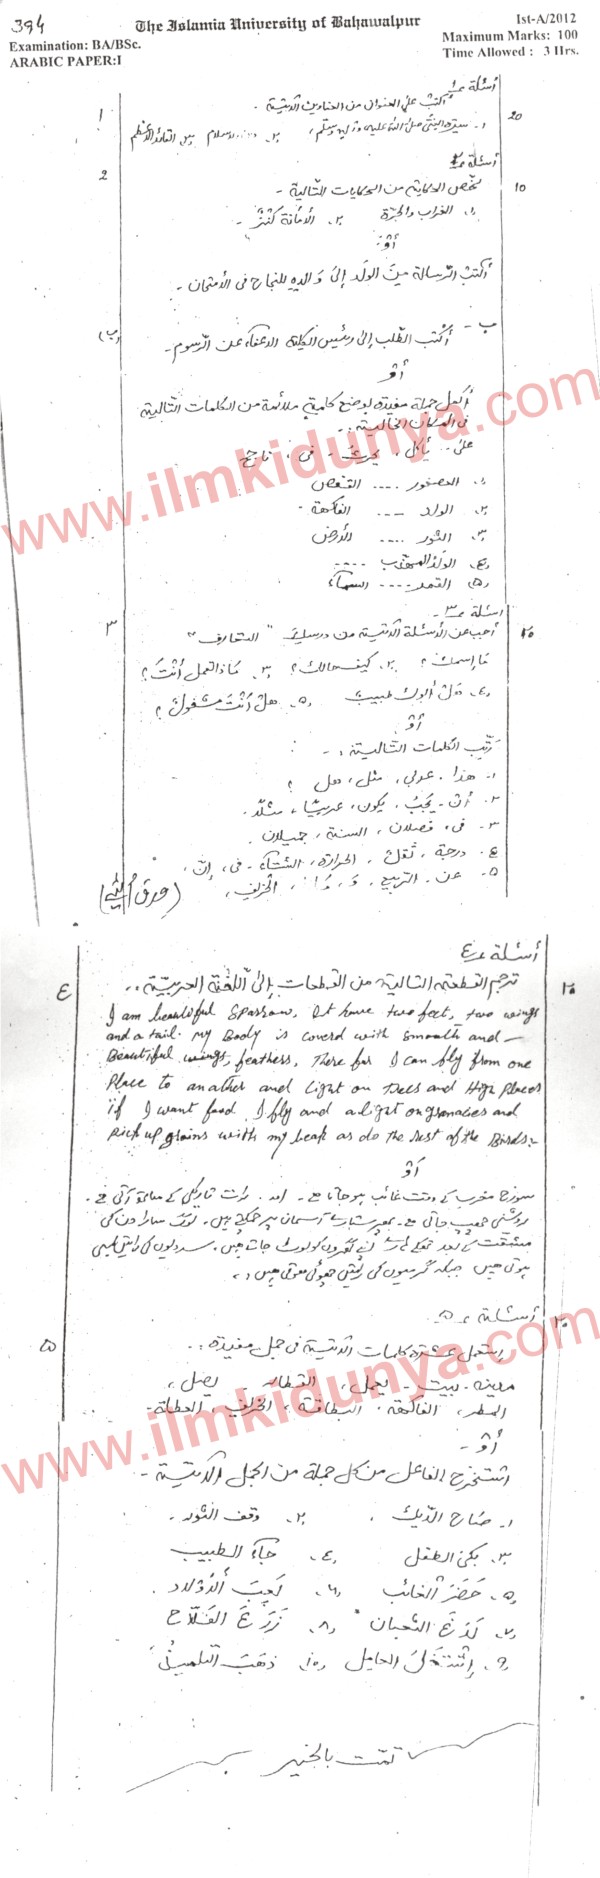 394
The Islamia University of Bahawalpur
Ist-A/2012
Examination: BA/BSc.
Maximum Marks: 100
ARABIC PAPER:I
Time Allowed : 3 Hrs.
أسئلة
1
أكتب على العنوان من العناوين الآتية -
٢٠
١. سيرة النبي صلى الله عليه وآله وسلم، ٢. الاسلام ٣. القائد الأعظم
أسئلة
2
لخص الحكاية من الحكايات التالية -
١٠
١. الغراب والجرة ٢. الأمانة كنز -
أوْ
أكتب الرسالة من الولد إلى والده للنجاح في الأمتحان -
(ب)
ب - أكتب الطلب إلى رئيس الكلية الاعفاء عن الرسوم -
أوْ
أكمل جملة مفيدة بوضع كلمة ملائمة من الكلمات التالية
في المكان الخالية..
على. يأكل. يحرث - في، ناجح
www.ilmkidunya.com
١. العصفور .... القفص
٢. الولد .... الفاكهة.
٣. الثور .... الأرض
٤. الولد المهذب ....
٥. القمر .... السماء
أسئلة ٣ -
٣
أجب عن الأسئلة الآتية من درسك "التعارف"
٢٠
ما إسمك ؟ ٢. كيف حالك ؟ ٣. ماذا تعمل أنت ؟
٤. هل أبوك طبيب ٥. هل أنت مشغول ؟
أوْ
رتب الكلمات التالية :-
١. هذا. عربي، مثل، هل ؟
٢. أن - يجب. يكون، عربيا،
٣. في، فصلان، السنة، جميلان.
٤. درجة، تقل، الحرارة، الشتاء - في، إن،
٥. عن - الربيع. الخريف،
(ورق ألٹیے)
أسئلة ٤
٤
ترجم القطعة التالية من القطعات إلى اللغة العربية..
٢٠
I am beautiful Sparrow. It have two feet, two wings
and a tail. My Body is coverd with smooth and -
Beautiful wings, feathers, There for I can fly from one
Place to another and Light on Trees and High Places
if I want food I fly and alight on granaries and
Pick up grains with my beak as do the Rest of the Birds:-
أوْ
سورج مغرب کے وقت غائب ہو جاتا ہے - اور رات تاریکی کے ساتھ آتی ہے.
روشنی چھپ جاتی ہے - پھر ستارے آسمان پر چمکتے ہیں. لوگ سارا دن کی
مشقت کے بعد تھکے اپنے گھروں کو لوٹ جاتے ہیں. سردیوں کی راتیں لمبی
ہوتی ہیں جبکہ گرمیوں کی راتیں چھوٹی ہوتی ہیں.
أسئلة ٥ -
٢٠
٥
إستعمل عشرة كلمات الآتية في جمل مفيدة..
مدينة - بيت - يعمل، القطار - يصل،
المطر، الفاكهة، البطاقة، الخريف، العطلة -
www.ilmkidunya.com
أوْ -
استخرج الفاعل من كل جملة من الجمل الآتية -
١. صاح الديك، ٢. وقف الثور -
٣. بكى الطفل ٤. جاء الطبيب
٥. حضر الغائب ٦. لعب الأولاد.
٧. لدغ الثعبان ٨. زرع الفلاح
٩. إشتغل العامل ١٠. ذهب التلميذ
تمت بالخير